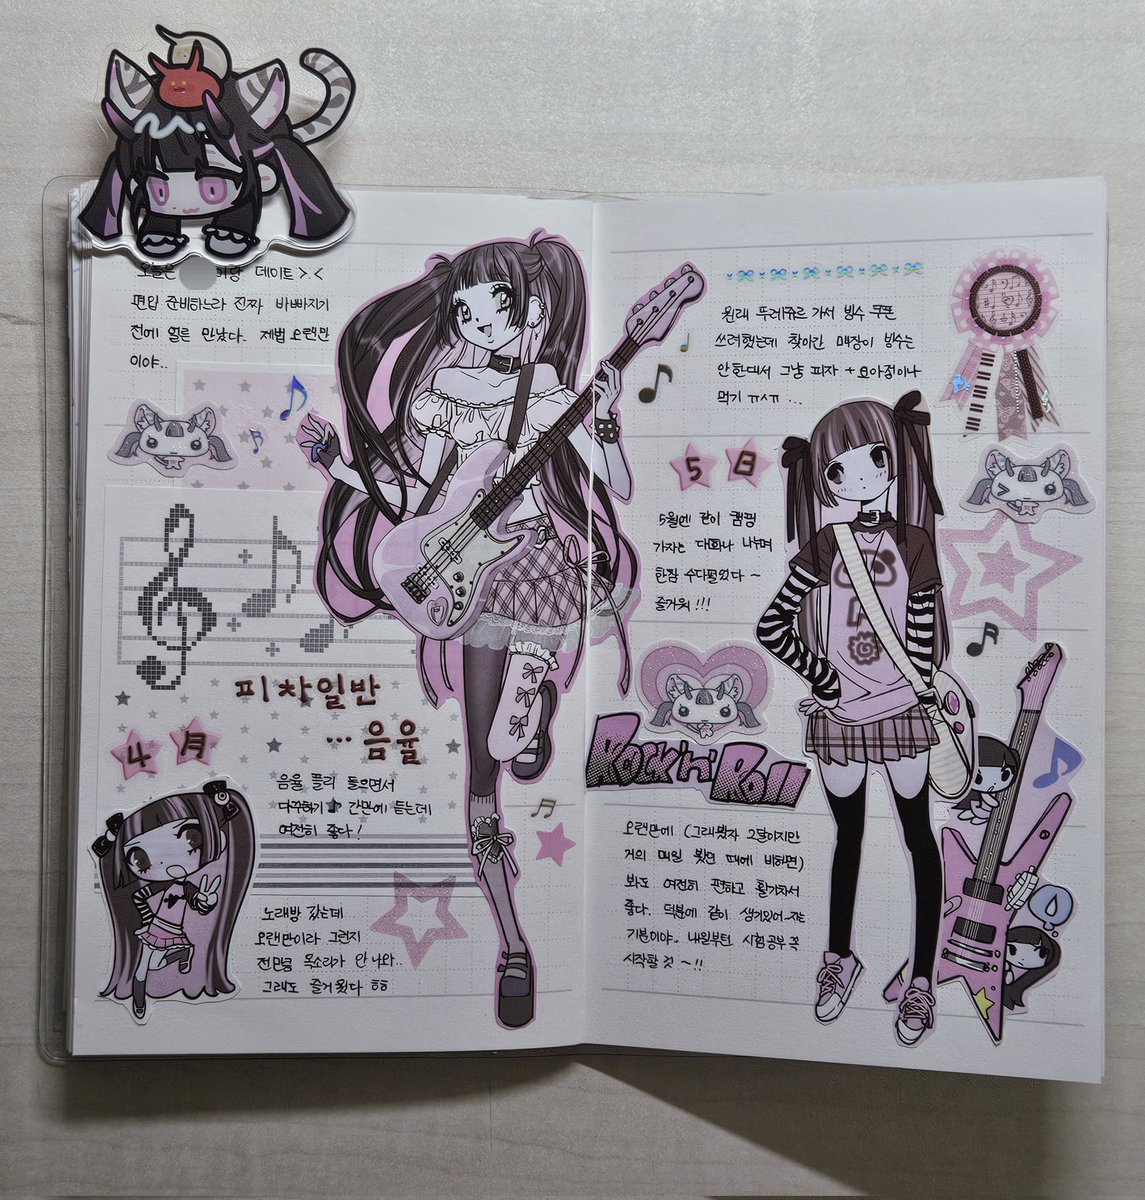 오늘은 이랑 데이트 >.<
편입 준비하느라 진짜 바빠지기
전에 얼른 만났다. 제법 오랜만
이야..
피차일반
… 음율
4 月
음율 플리 들으면서
다꾸하기 ♪ 간만에 듣는데
여전히 좋다!
노래방 갔는데
오랜만이라 그런지
전만큼 목소리가 안 나와..
그래도 즐거웠다 ㅎㅎ
원래 뚜레쥬르 가서 빙수 쿠폰
쓰려했는데 찾아간 매장이 빙수는
안한대서 그냥 피자 + 요아정이나
먹기 ㅠㅅㅠ ...
5 日
5월엔 같이 캠핑
가자는 대화나 나누며
한참 수다떨었다 ~
즐거워!!!
Rock'n'Roll
오랜만에 (그래봤자 2달이지만
거의 매일 봤던 때에 비하면)
봐도 여전히 편하고 활기차서
좋다. 덕분에 같이 생기있어지는
기분이야. 내일부턴 시험공부 꼭
시작할 것 ~!!